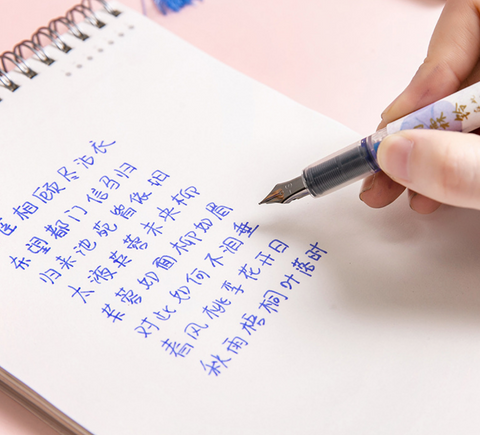 臣相顾尽沾衣
东望都门信马归
归来池苑皆依旧
太液芙蓉未央柳
芙蓉如面柳如眉
对此如何不泪垂
春风桃李花开日
秋雨梧桐叶落时